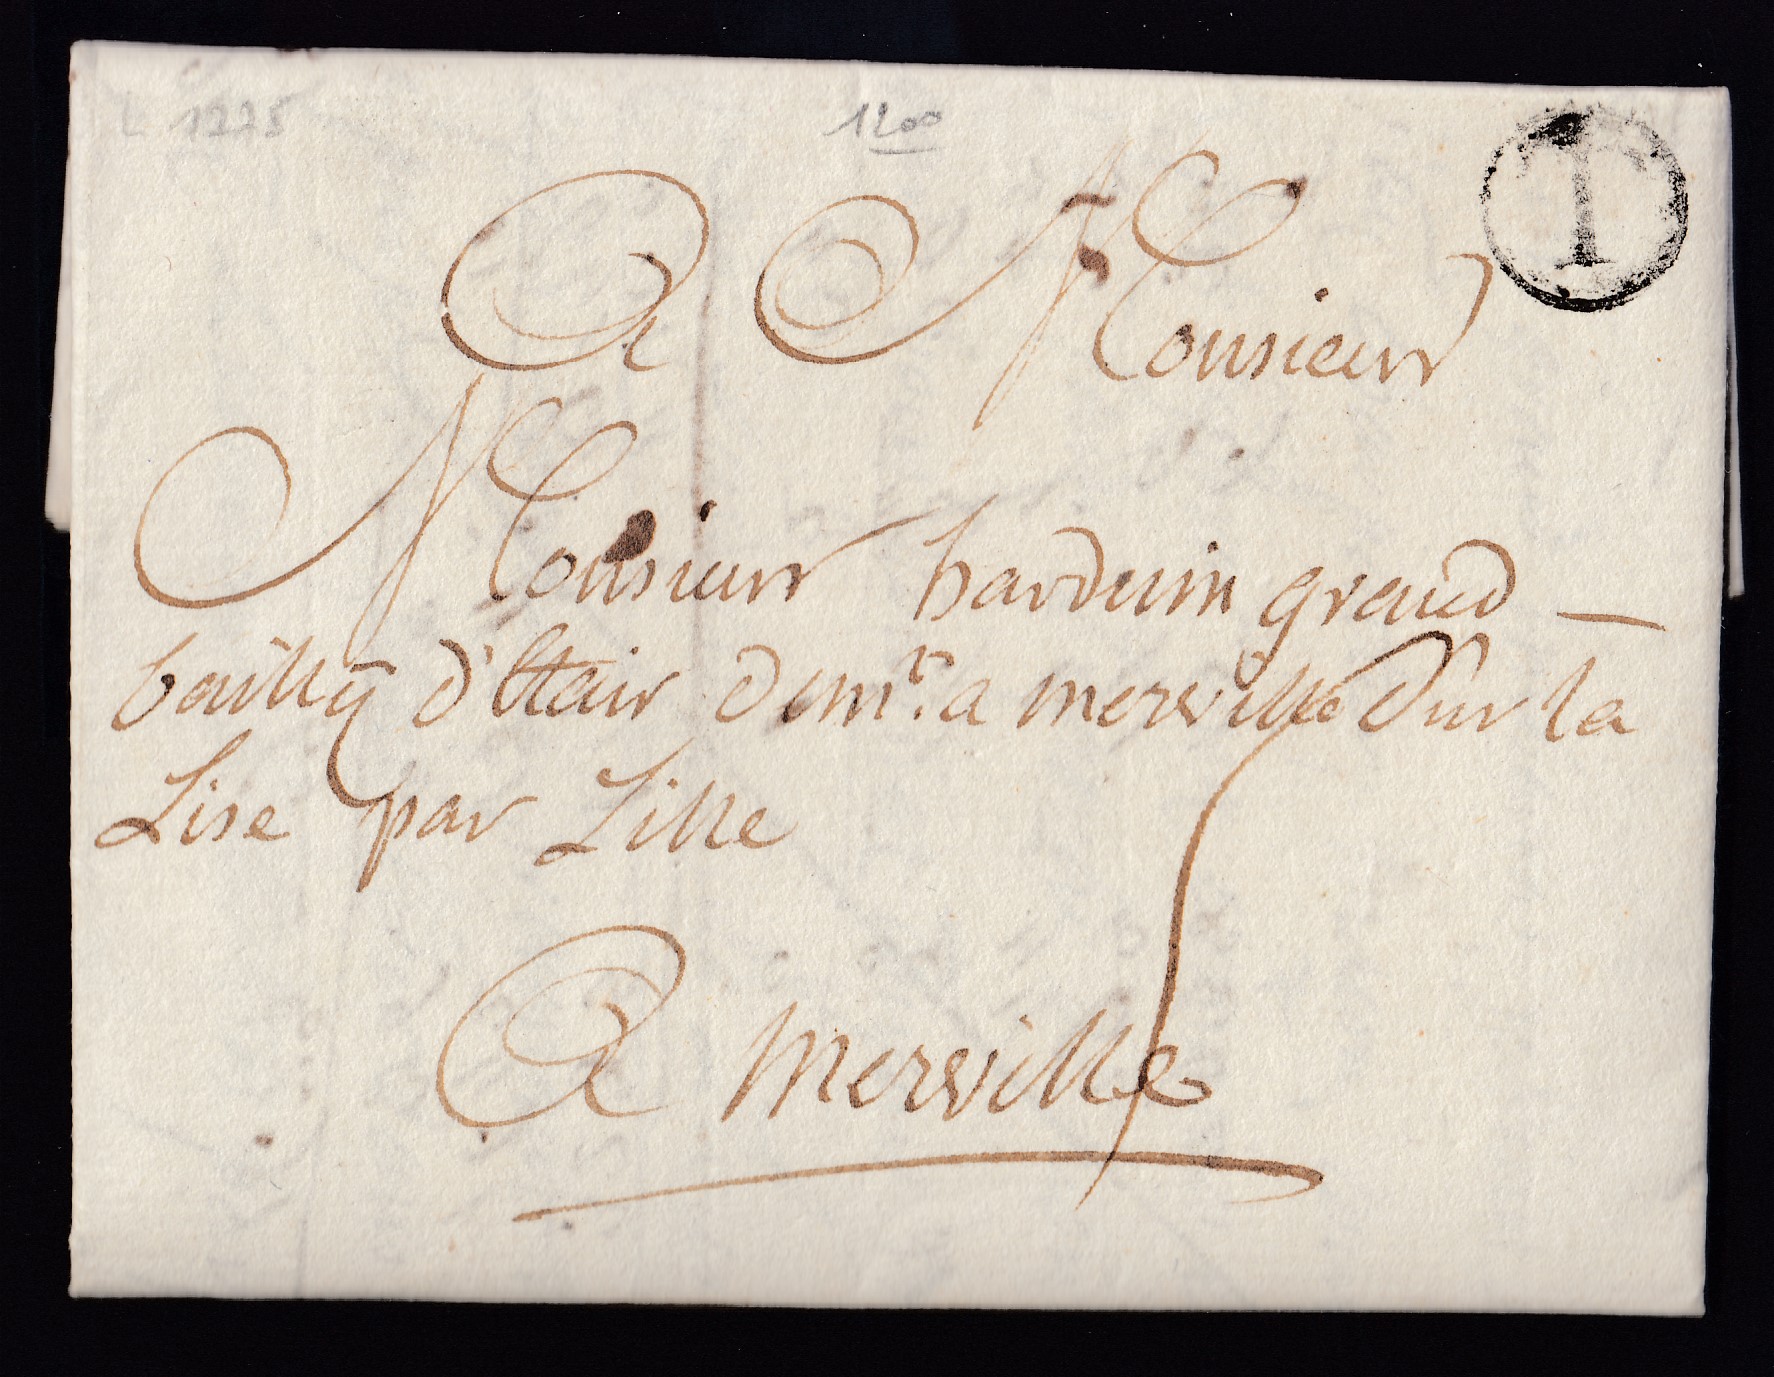 L 1225
1200
T
A Monsieur
Monsieur harduin grand
bailly d'Estair dem.t a merville sur la
Lise par Lille
5
A merville